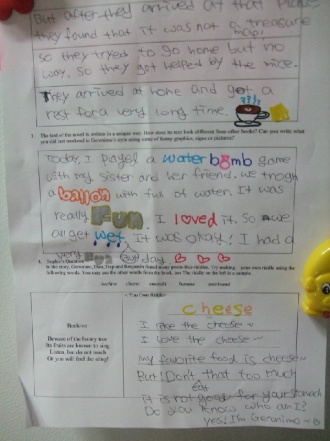 But after they arrived at that place
they found that it was not a treasure
map!
so they tryed to go home but no
way. so they got helped by the mice.
They arrived at home and got a
rest for a very long time.
3. The text of the novel is written in a unique way. How does its text look different from other books? Can you write what
you did last weekend in Geronimo's style using some of funny graphics, signs or pictures?
Today, I played a water bomb game
with my sister and her friend. we trogh
a balloon with full of water. It was
really Fun. I loved it. So we
all get wet. It was okay! I had a
very Fun Sunday.
4.
In the story, Geronimo, Thea, Trap and Benjamin found many poem-like riddles. Try making your own riddle using the
following words. You may use the other words from the book, too. The riddle on the left is a sample.
cheese
banana
< Your Own Riddle >
cheese
Beehive
Beware of the honey tree
Its fruits are known to sing
Listen, but do not touch
Or you will find the sting!
I like the cheese~
I love the cheese~
My favorite food is cheese~
But! Don't that too much
eat
it is not good for your stomach
Do you know who am I?
yes! I'm Geronimo~